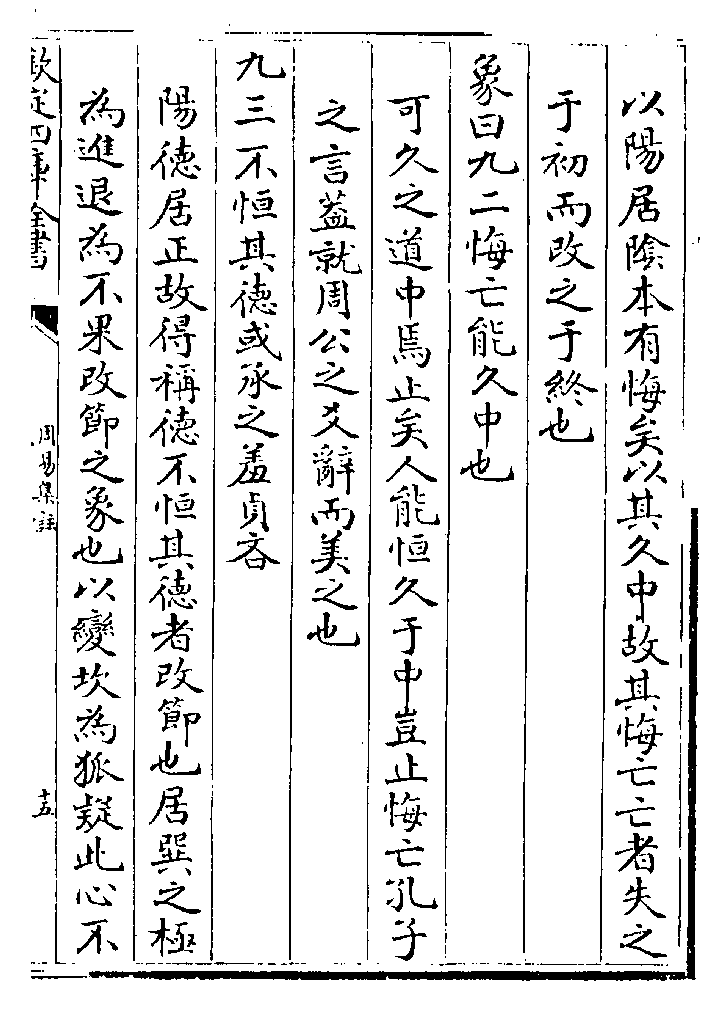 以陽居陰本有悔矣以其久中故其悔亡亡者失之
于初而改之于終也
象曰九二悔亡能久中也
可久之道中焉止矣人能恒久于中豈止悔亡孔子
之言蓋就周公之爻辭而美之也
九三不恒其德或承之羞貞吝
陽德居正故得稱德不恒其德者改節也居巽之極
為進退為不果改節之象也以變坎為狐疑此心不
欽定四庫全書
周易集註
十五